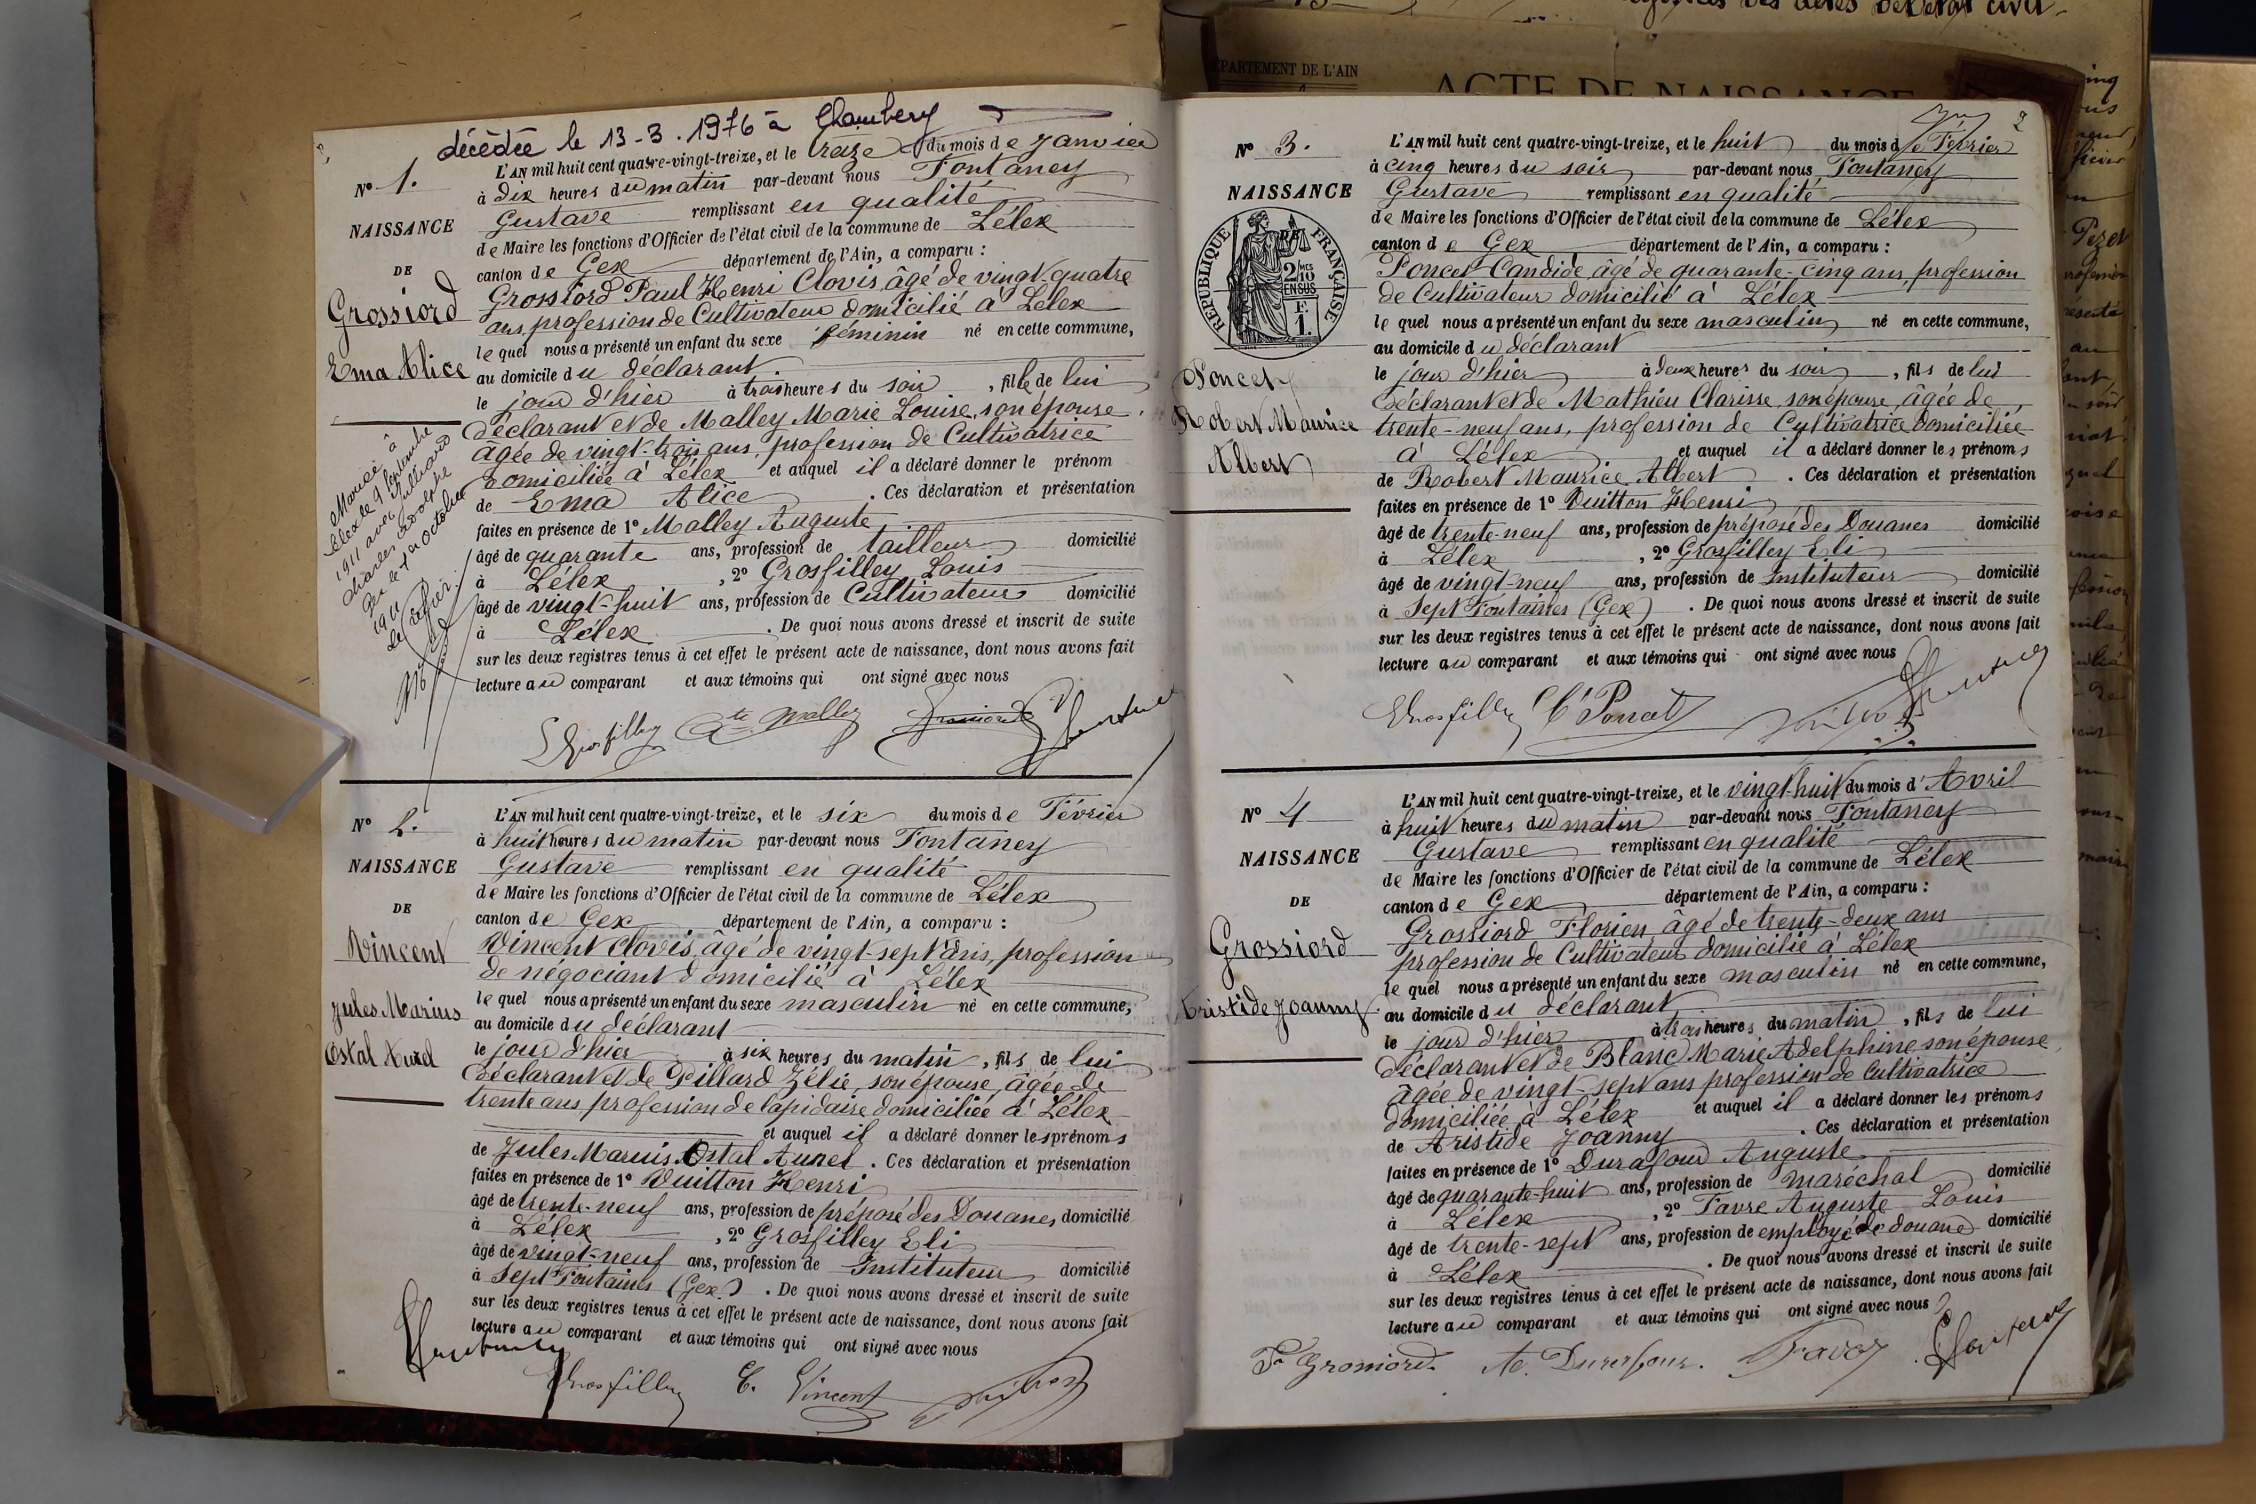 décédée le 13-3.1976 à Chambéry
N° 1.
NAISSANCE
DE
Grossiord
Ema Alice
Marié à
Lélex le 9 Septembre
1911 avec Julliard
Charles Adolphe
le 7 Octobre
1911
L'AN mil huit cent quatre-vingt-treize, et le treize du mois de Janvier
à dix heures du matin par-devant nous Fontaney
Gustave remplissant en qualité
de Maire les fonctions d'Officier de l'état civil de la commune de Lélex
canton de Gex département de l'Ain, a comparu :
Grossiord Paul Henri Clovis, âgé de vingt-quatre
ans, profession de Cultivateur domicilié à Lélex
lequel nous a présenté un enfant du sexe féminin né en cette commune,
au domicile du déclarant
le jour d'hier à trois heures du soir, fille de lui
déclarant et de Malley Marie Louise, son épouse,
âgée de vingt-trois ans, profession de Cultivatrice
domiciliée à Lélex et auquel il a déclaré donner le prénom
de Ema Alice. Ces déclaration et présentation
faites en présence de 1° Malley Auguste
âgé de quarante ans, profession de tailleur domicilié
à Lélex, 2° Grosfilley Louis
âgé de vingt-huit ans, profession de Cultivateur domicilié
à Lélex. De quoi nous avons dressé et inscrit de suite
sur les deux registres tenus à cet effet le présent acte de naissance, dont nous avons fait
lecture au comparant et aux témoins qui ont signé avec nous
L Grosfilley Ate Malley Grossiord Fontaney
N° 2.
NAISSANCE
DE
Vincent
Jules Marius
Ostal Aurel
L'AN mil huit cent quatre-vingt-treize, et le six du mois de Février
à huit heures du matin par-devant nous Fontaney
Gustave remplissant en qualité
de Maire les fonctions d'Officier de l'état civil de la commune de Lélex
canton de Gex département de l'Ain, a comparu :
Vincent Clovis, âgé de vingt-sept ans, profession
de négociant domicilié à Lélex
lequel nous a présenté un enfant du sexe masculin né en cette commune,
au domicile du déclarant
le jour d'hier à six heures du matin, fils de lui
déclarant et de Pillard Zélie, son épouse, âgée de
trente ans profession de lapidaire domiciliée à Lélex
et auquel il a déclaré donner les prénoms
de Jules Marius Ostal Aurel. Ces déclaration et présentation
faites en présence de 1° Vuitton Henri
âgé de trente-neuf ans, profession de préposé des Douanes, domicilié
à Lélex, 2° Grosfilley Eli
âgé de vingt-neuf ans, profession de Instituteur domicilié
à Sept Fontaines (Gex). De quoi nous avons dressé et inscrit de suite
sur les deux registres tenus à cet effet le présent acte de naissance, dont nous avons fait
lecture au comparant et aux témoins qui ont signé avec nous
Fontaney
Grosfilley C. Vincent Vuitton
DÉPARTEMENT DE L'AIN
ACTE DE NAISSANCE
2
N° 3.
NAISSANCE
DE
RÉPUBLIQUE FRANÇAISE
2 10MES
EN SUS
F.
1.
Poncet
Robert Maurice
Albert
L'AN mil huit cent quatre-vingt-treize, et le huit du mois de Février
à cinq heures du soir par-devant nous Fontaney
Gustave remplissant en qualité
de Maire les fonctions d'Officier de l'état civil de la commune de Lélex
canton de Gex département de l'Ain, a comparu :
Poncet Candide, âgé de quarante-cinq ans, profession
de Cultivateur domicilié à Lélex
lequel nous a présenté un enfant du sexe masculin né en cette commune,
au domicile du déclarant
le jour d'hier à deux heures du soir, fils de lui
déclarant et de Mathieu Clarisse, son épouse, âgée de
trente-neuf ans, profession de Cultivatrice domiciliée
à Lélex et auquel il a déclaré donner les prénoms
de Robert Maurice Albert. Ces déclaration et présentation
faites en présence de 1° Vuitton Henri
âgé de trente-neuf ans, profession de préposé des Douanes domicilié
à Lélex, 2° Grosfilley Eli
âgé de vingt-neuf ans, profession de Instituteur domicilié
à Sept Fontaines (Gex). De quoi nous avons dressé et inscrit de suite
sur les deux registres tenus à cet effet le présent acte de naissance, dont nous avons fait
lecture au comparant et aux témoins qui ont signé avec nous
Grosfilley C Poncet Vuitton Fontaney
N° 4
NAISSANCE
DE
Grossiord
Aristide Joanny
L'AN mil huit cent quatre-vingt-treize, et le vingt-huit du mois d'Avril
à huit heures du matin par-devant nous Fontaney
Gustave remplissant en qualité
de Maire les fonctions d'Officier de l'état civil de la commune de Lélex
canton de Gex département de l'Ain, a comparu :
Grossiord Florien âgé de trente-deux ans
profession de Cultivateur domicilié à Lélex
lequel nous a présenté un enfant du sexe masculin né en cette commune,
au domicile du déclarant
le jour d'hier à trois heures du matin, fils de lui
déclarant et de Blanc Marie Adelphine son épouse,
âgée de vingt-sept ans profession de Cultivatrice
domiciliée à Lélex et auquel il a déclaré donner les prénoms
de Aristide Joanny. Ces déclaration et présentation
faites en présence de 1° Durafour Auguste
âgé de quarante-huit ans, profession de maréchal domicilié
à Lélex, 2° Favre Auguste Louis
âgé de trente-sept ans, profession de employé de douane domicilié
à Lélex. De quoi nous avons dressé et inscrit de suite
sur les deux registres tenus à cet effet le présent acte de naissance, dont nous avons fait
lecture au comparant et aux témoins qui ont signé avec nous
F Grossiord. A. Durafour. Favre Fontaney